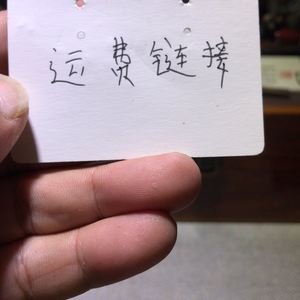 运费链接